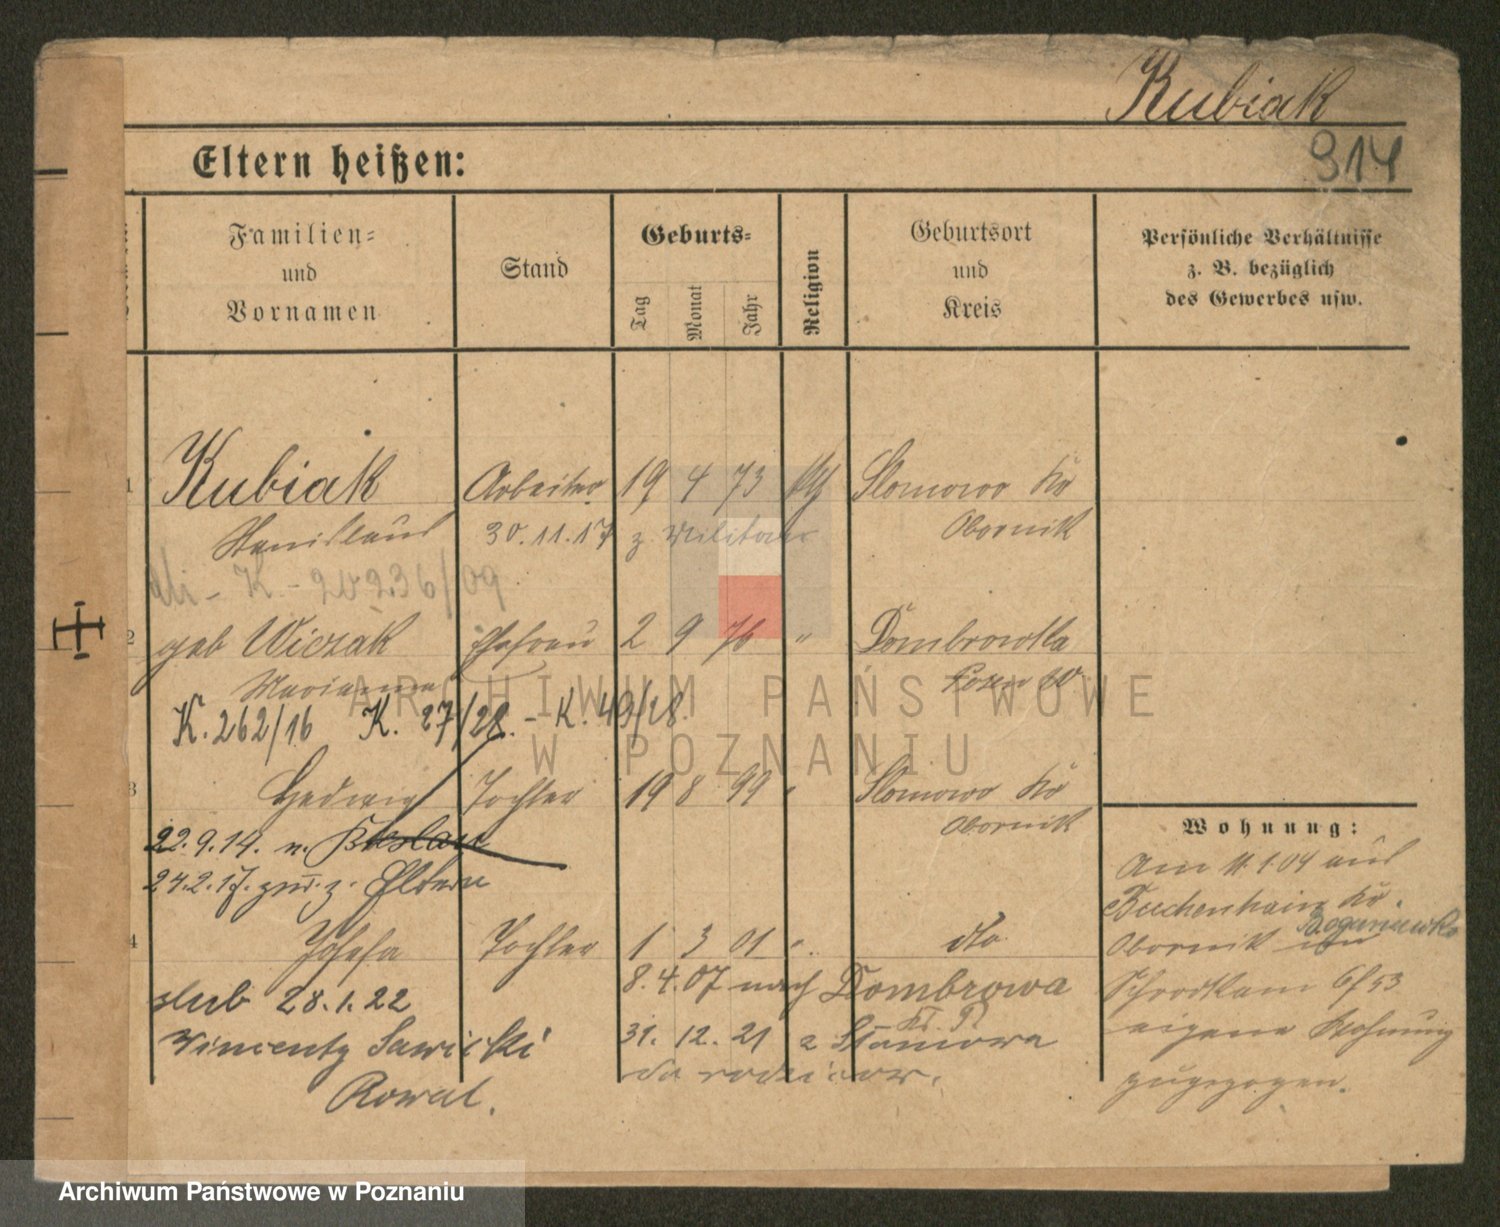 Kubiak
314
Eltern heißen:
Familien= und Vornamen
Stand
Geburts=
Tag
Monat
Jahr
Religion
Geburtsort und Kreis
Persönliche Verhältnisse
z. B. bezüglich
des Gewerbes usw.
1 Kubiak Arbeiter 19 4 73 Slomowo Kr
Stanislaus 30.11.17 z. Militär Obornik
K - 20236/09
2 geb Wiczak Ehefrau 2 9 76 " Dombrowka
Marianna Posen W
K. 262/16 K. 27/28. - K. 49/28.
3 Hedwig Tochter 19 8 99 " Slomowo Kr
Obornik
22.9.14. n.
24.2.17. zur. z. Eltern
4 Josefa Tochter 1 3 01 " dto
8.4.07 nach Dombrowa
slub 28.1.22
31. 12. 21 z
Vincenty Sawicki
do rodziców.
Kowal.
Wohnung:
Am 11.1.04 aus
Buchenhain Kr.
Boguniewko
Obornik in
Schrodkam 6/53
eigene Wohnung
zugezogen.
ARCHIWUM PAŃSTWOWE
W POZNANIU
Archiwum Państwowe w Poznaniu